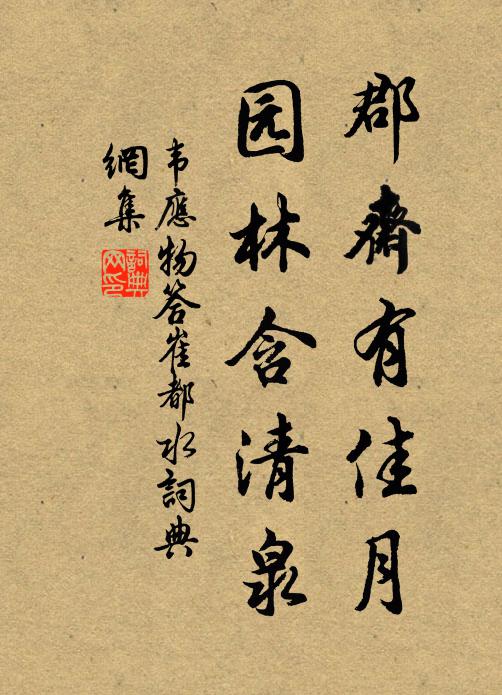 郡齋有佳月
园林含清泉
韦應物答崔都水詞典
網集
詞典
网印